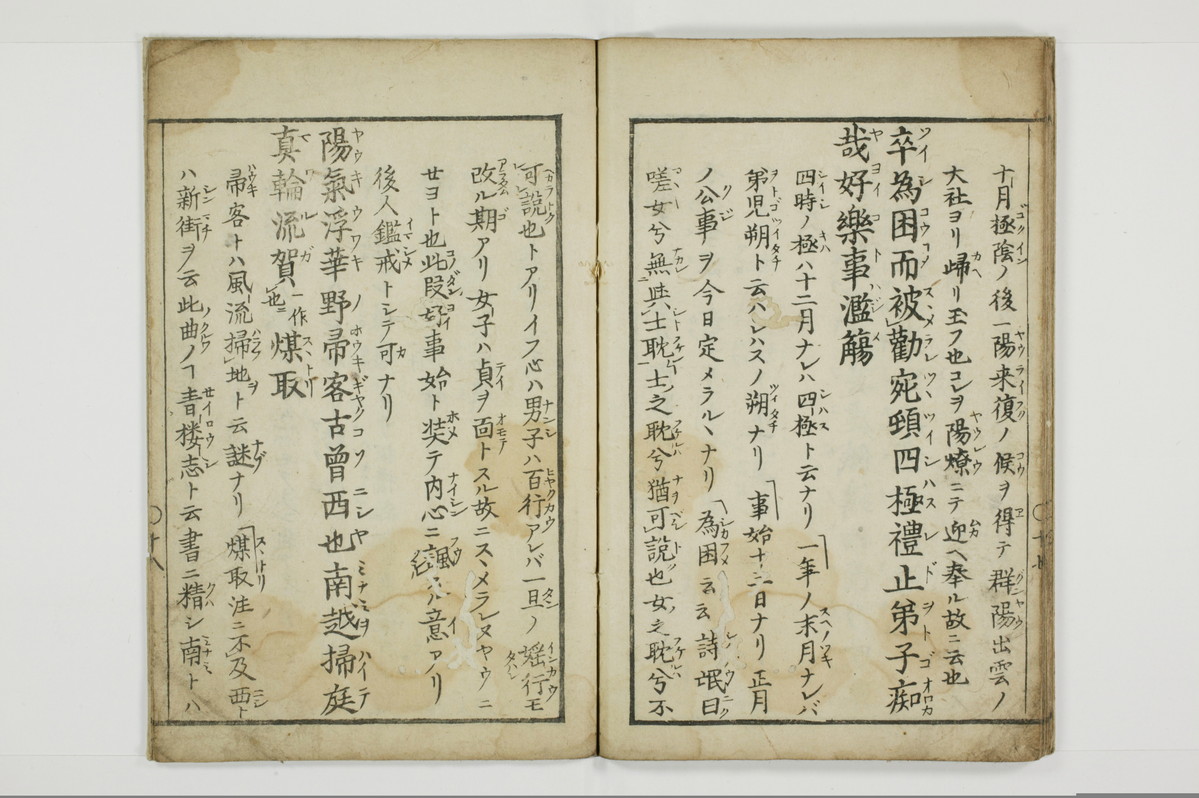 十月極陰ノ後一陽来復ノ候ヲ得テ群陽出雲ノ
大社ヨリ歸リ玉フ也コレヲ陽燎ニテ迎ヘ奉ル故ニ云也
卒為困而被勸宛頸四極禮止弟子痴
哉好樂事濫觴
四時ノ極ハ十二月ナレハ四極ト云ナリ 一年ノ末月ナレバ
弟児朔ト云ハシハスノ朔ナリ 事始十二日ナリ 正月
ノ公事ヲ今日定メラルヽナリ 為困云云 詩氓曰
嗟女兮無與士耽士之耽兮猶可説也女之耽兮不
可説也トアリイフ心ハ男子ハ百行アレバ一旦ノ婬行モ
改ル期アリ女子ハ貞ヲ面トスル故ニスヽメラレヌヤウニ
せヨト也此段好事始ト装テ内心ニ諷スル意アリ
後人鑑戒トシテ可ナリ
陽氣浮華野帚客古曾西也南越掃庭
真輪流賀一作也煤取
帚客トハ風流掃地ト云謎ナリ 煤取注ニ不及西ト
ハ新街ヲ云此曲ノヿ青楼志ト云書ニ精シ南トハ